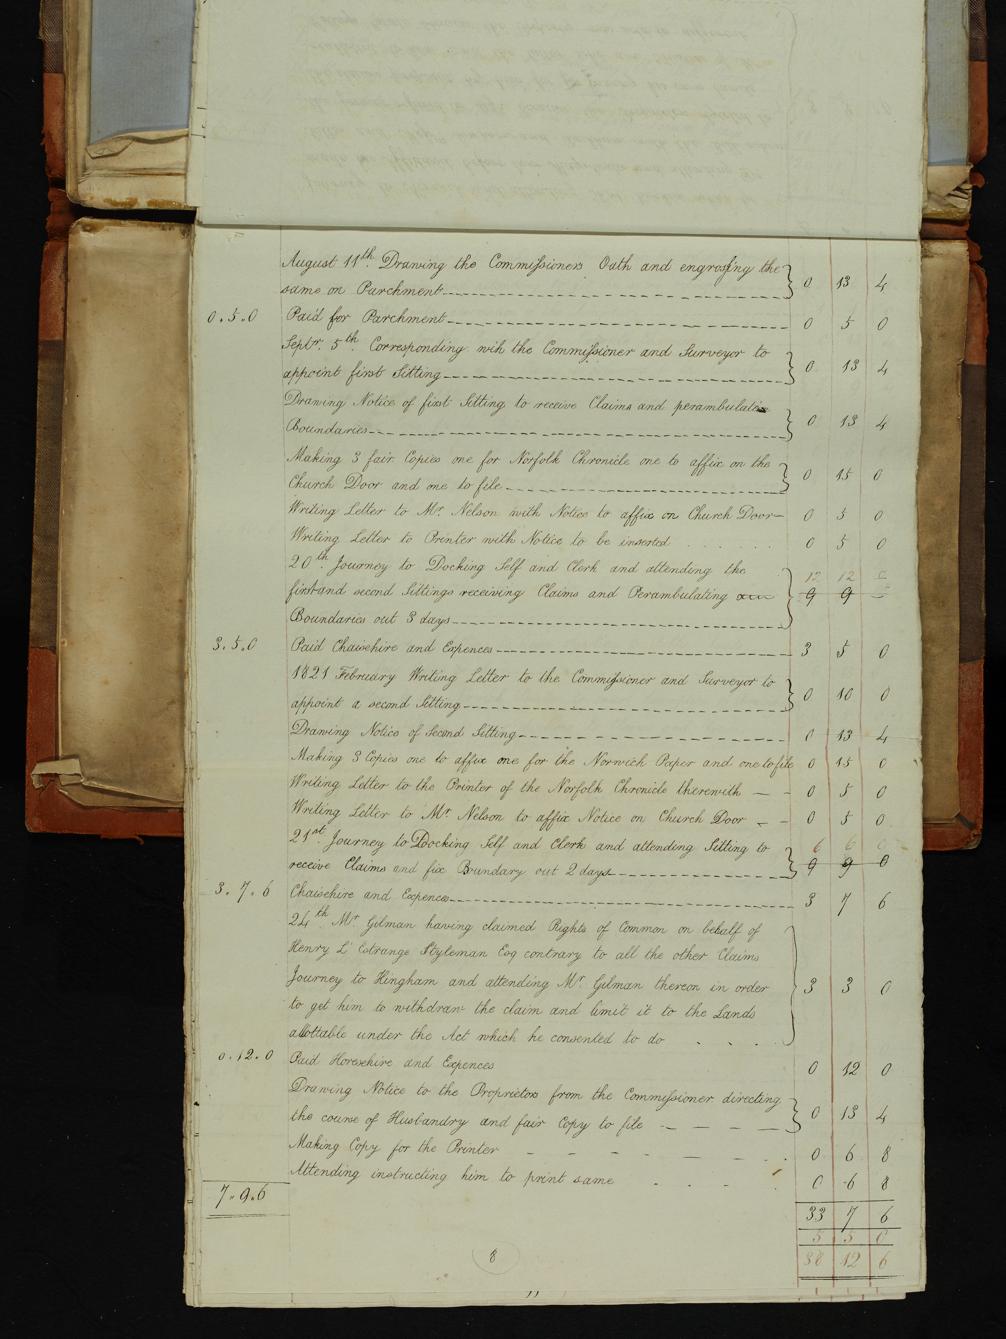 August 11th. Drawing the Commissioners Oath and engrossing the
same on Parchment 0 13 4
0.5.0 Paid for Parchment 0 5 0
Septr. 5th Corresponding with the Commissioner and Surveyor to
appoint first Sitting 0 13 4
Drawing Notice of first Sitting to receive Claims and perambulating
Boundaries 0 13 4
Making 3 fair Copies one for Norfolk Chronicle one to affix on the
Church Door and one to file 0 15 0
Writing Letter to Mr. Nelson with Notice to affix on Church Door 0 5 0
Writing Letter to Printer with Notice to be inserted 0 5 0
20th Journey to Docking Self and Clerk and attending the
12 12 0
first and second Sittings receiving Claims and Perambulating 9 9
Boundaries out 3 days
3.5.0 Paid Chaisehire and Expences 3 5 0
1821 February Writing Letter to the Commissioner and Surveyor to
appoint a second Sitting 0 10 0
Drawing Notice of Second Sitting 0 13 4
Making 3 Copies one to affix one for the Norwich Paper and one to file 0 15 0
Writing Letter to the Printer of the Norfolk Chronicle therewith 0 5 0
Writing Letter to Mr. Nelson to affix Notice on Church Door 0 5 0
21st Journey to Docking Self and Clerk and attending Sitting to 6 6 0
receive Claims and fix Boundary out 2 days 9 9 0
3.7.6 Chaisehire and Expences 3 7 6
24th Mr Gilman having claimed Rights of Common on behalf of
Henry L'Estrange Styleman Esq contrary to all the other Claims
Journey to Hingham and attending Mr. Gilman thereon in order 3 3 0
to get him to withdraw the claim and limit it to the Lands
allottable under the Act which he consented to do
0.12.0 Paid Horsehire and Expences 0 12 0
Drawing Notice to the Proprietors from the Commissioner directing
the course of Husbandry and fair Copy to file 0 13 4
Making Copy for the Printer 0 6 8
Attending instructing him to print same 0 6 8
7.9.6
33 7 6
5 5 0
38 12 6
8